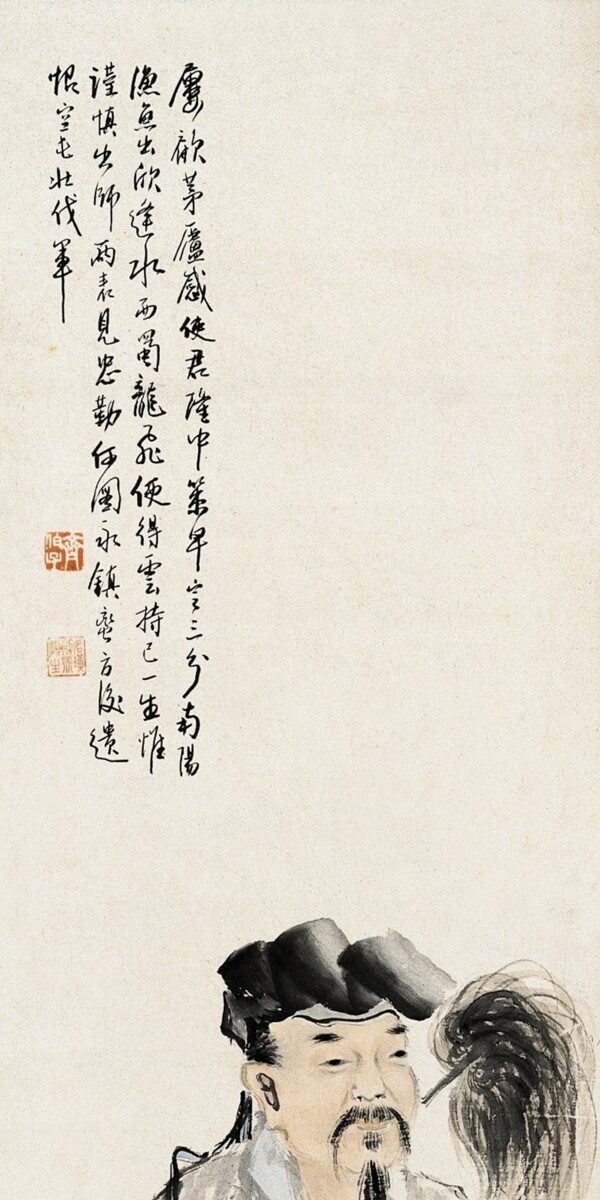 屢顧茅廬感使君隆中策早定三分南陽
漁無出欣逢水西蜀龍飛便得雲持己一生惟
謹慎出師兩表見忠勤何圖永鎮蠻方後遺
恨空屯壯伐軍